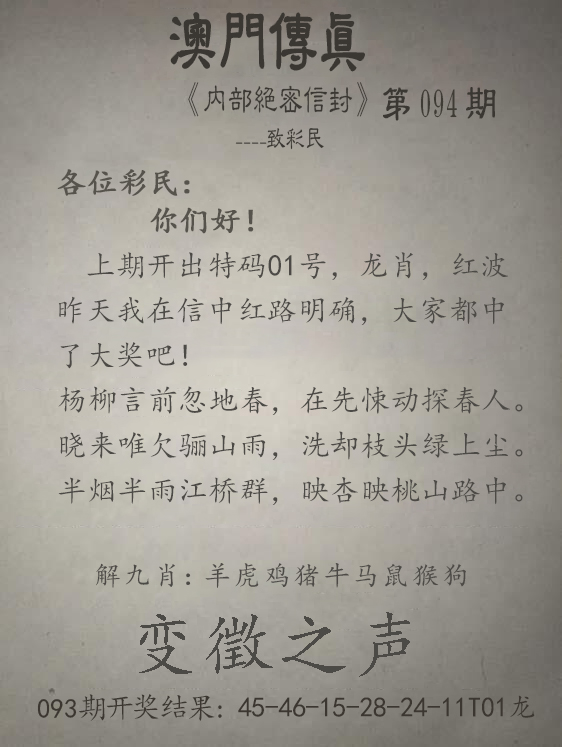 澳門傳眞
《内部絕密信封》第094期
----致彩民
各位彩民：
你们好！
上期开出特码01号，龙肖，红波
昨天我在信中红路明确，大家都中
了大奖吧！
杨柳言前忽地春，在先悚动探春人。
晓来唯欠骊山雨，洗却枝头绿上尘。
半烟半雨江桥群，映杏映桃山路中。
解九肖：羊虎鸡猪牛马鼠猴狗
变徵之声
093期开奖结果：45-46-15-28-24-11T01龙